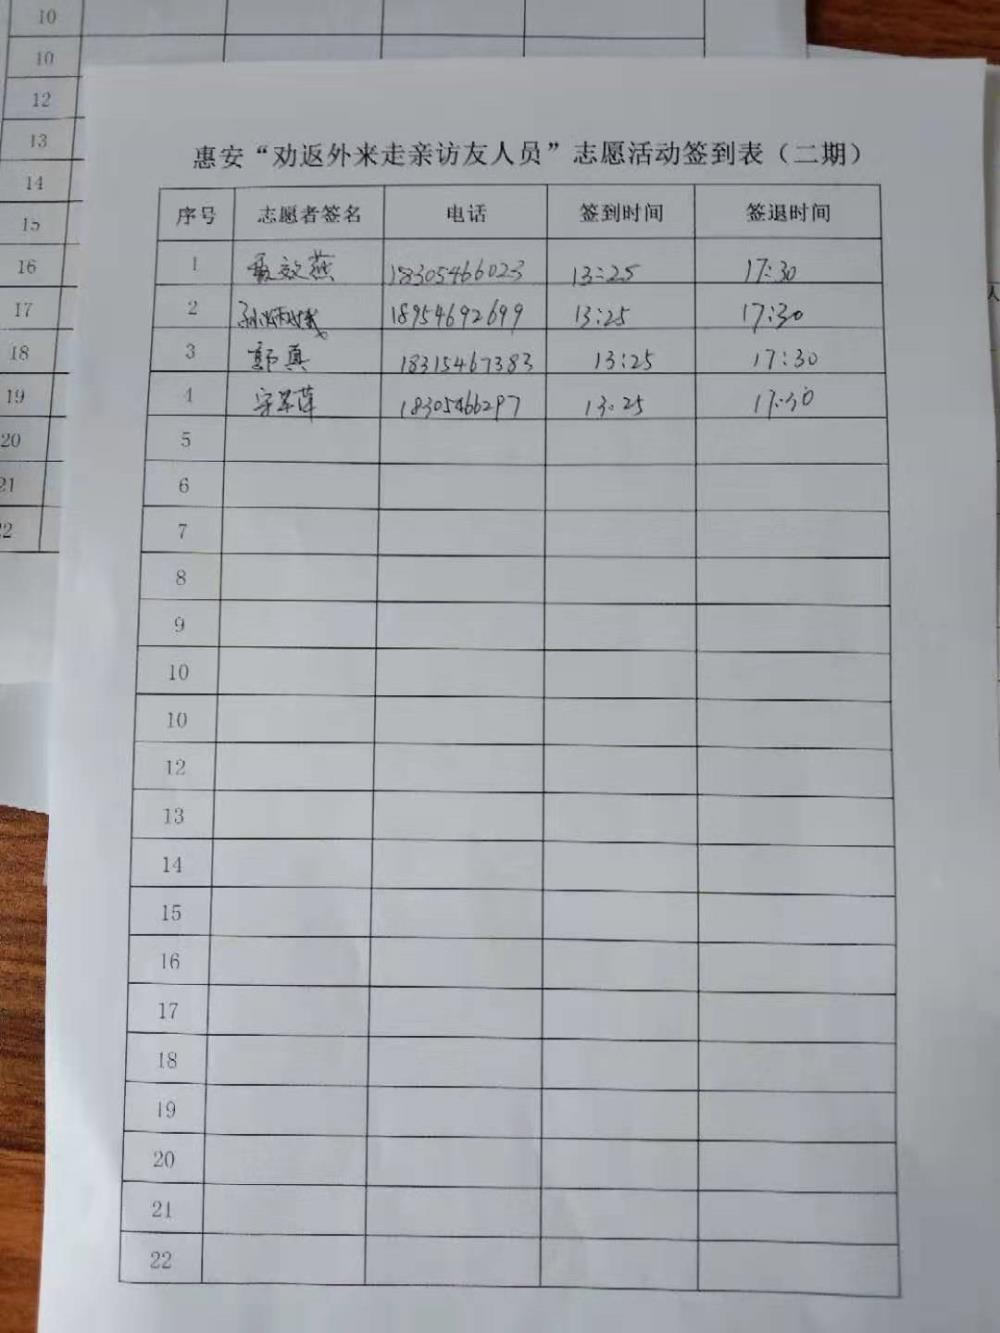 10
10
12
13
14
15
16
17
18
19
20
21
22
人
惠安“劝返外来走亲访友人员”志愿活动签到表（二期）
序号 志愿者签名 电话 签到时间 签退时间
1 聂效燕 18305466023 13:25 17:30
2 18954692699 13:25 17:30
3 郭真 18315467383 13:25 17:30
4 18305466297 13:25 17:30
5
6
7
8
9
10
10
12
13
14
15
16
17
18
19
20
21
22